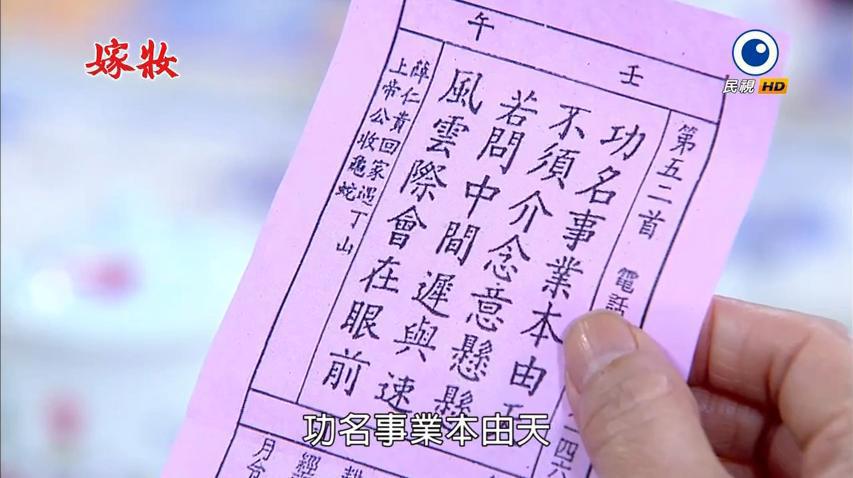 嫁妝
民視 HD
壬 午
第五二首 電話
四六
功名事業本由
不須介念意懸懸
若問中間遲與速
風雲際會在眼前
薛仁貴回家遇丁山
上帝公收龜蛇
月令
經
功名事業本由天